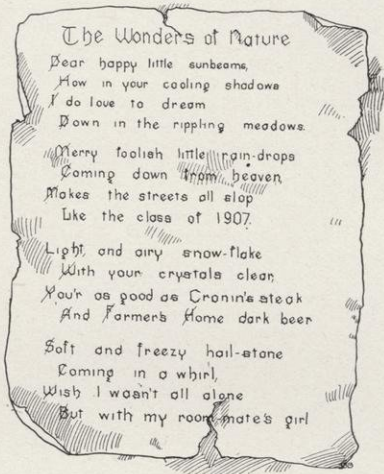 The Wonders of Nature
Dear happy little sunbeams,
How in your cooling shadows
I do love to dream
Down in the rippling meadows.
Merry foolish little rain-drops
Coming down from heaven
Makes the streets all slop
Like the class of 1907.
Light, and airy snow-flake
With your crystals clear,
You'r as good as Cronin's steak
And Farmer's Home dark beer
Soft and freezy hail-stone
Coming in a whirl,
Wish I wasn't all alone
But with my room-mate's girl